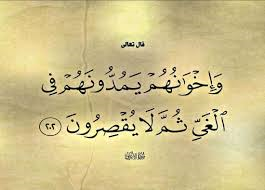 قال تعالى
وَإِخْوَٰنُهُمْ يَمُدُّونَهُمْ فِى
ٱلْغَىِّ ثُمَّ لَا يُقْصِرُونَ ٢٠٢